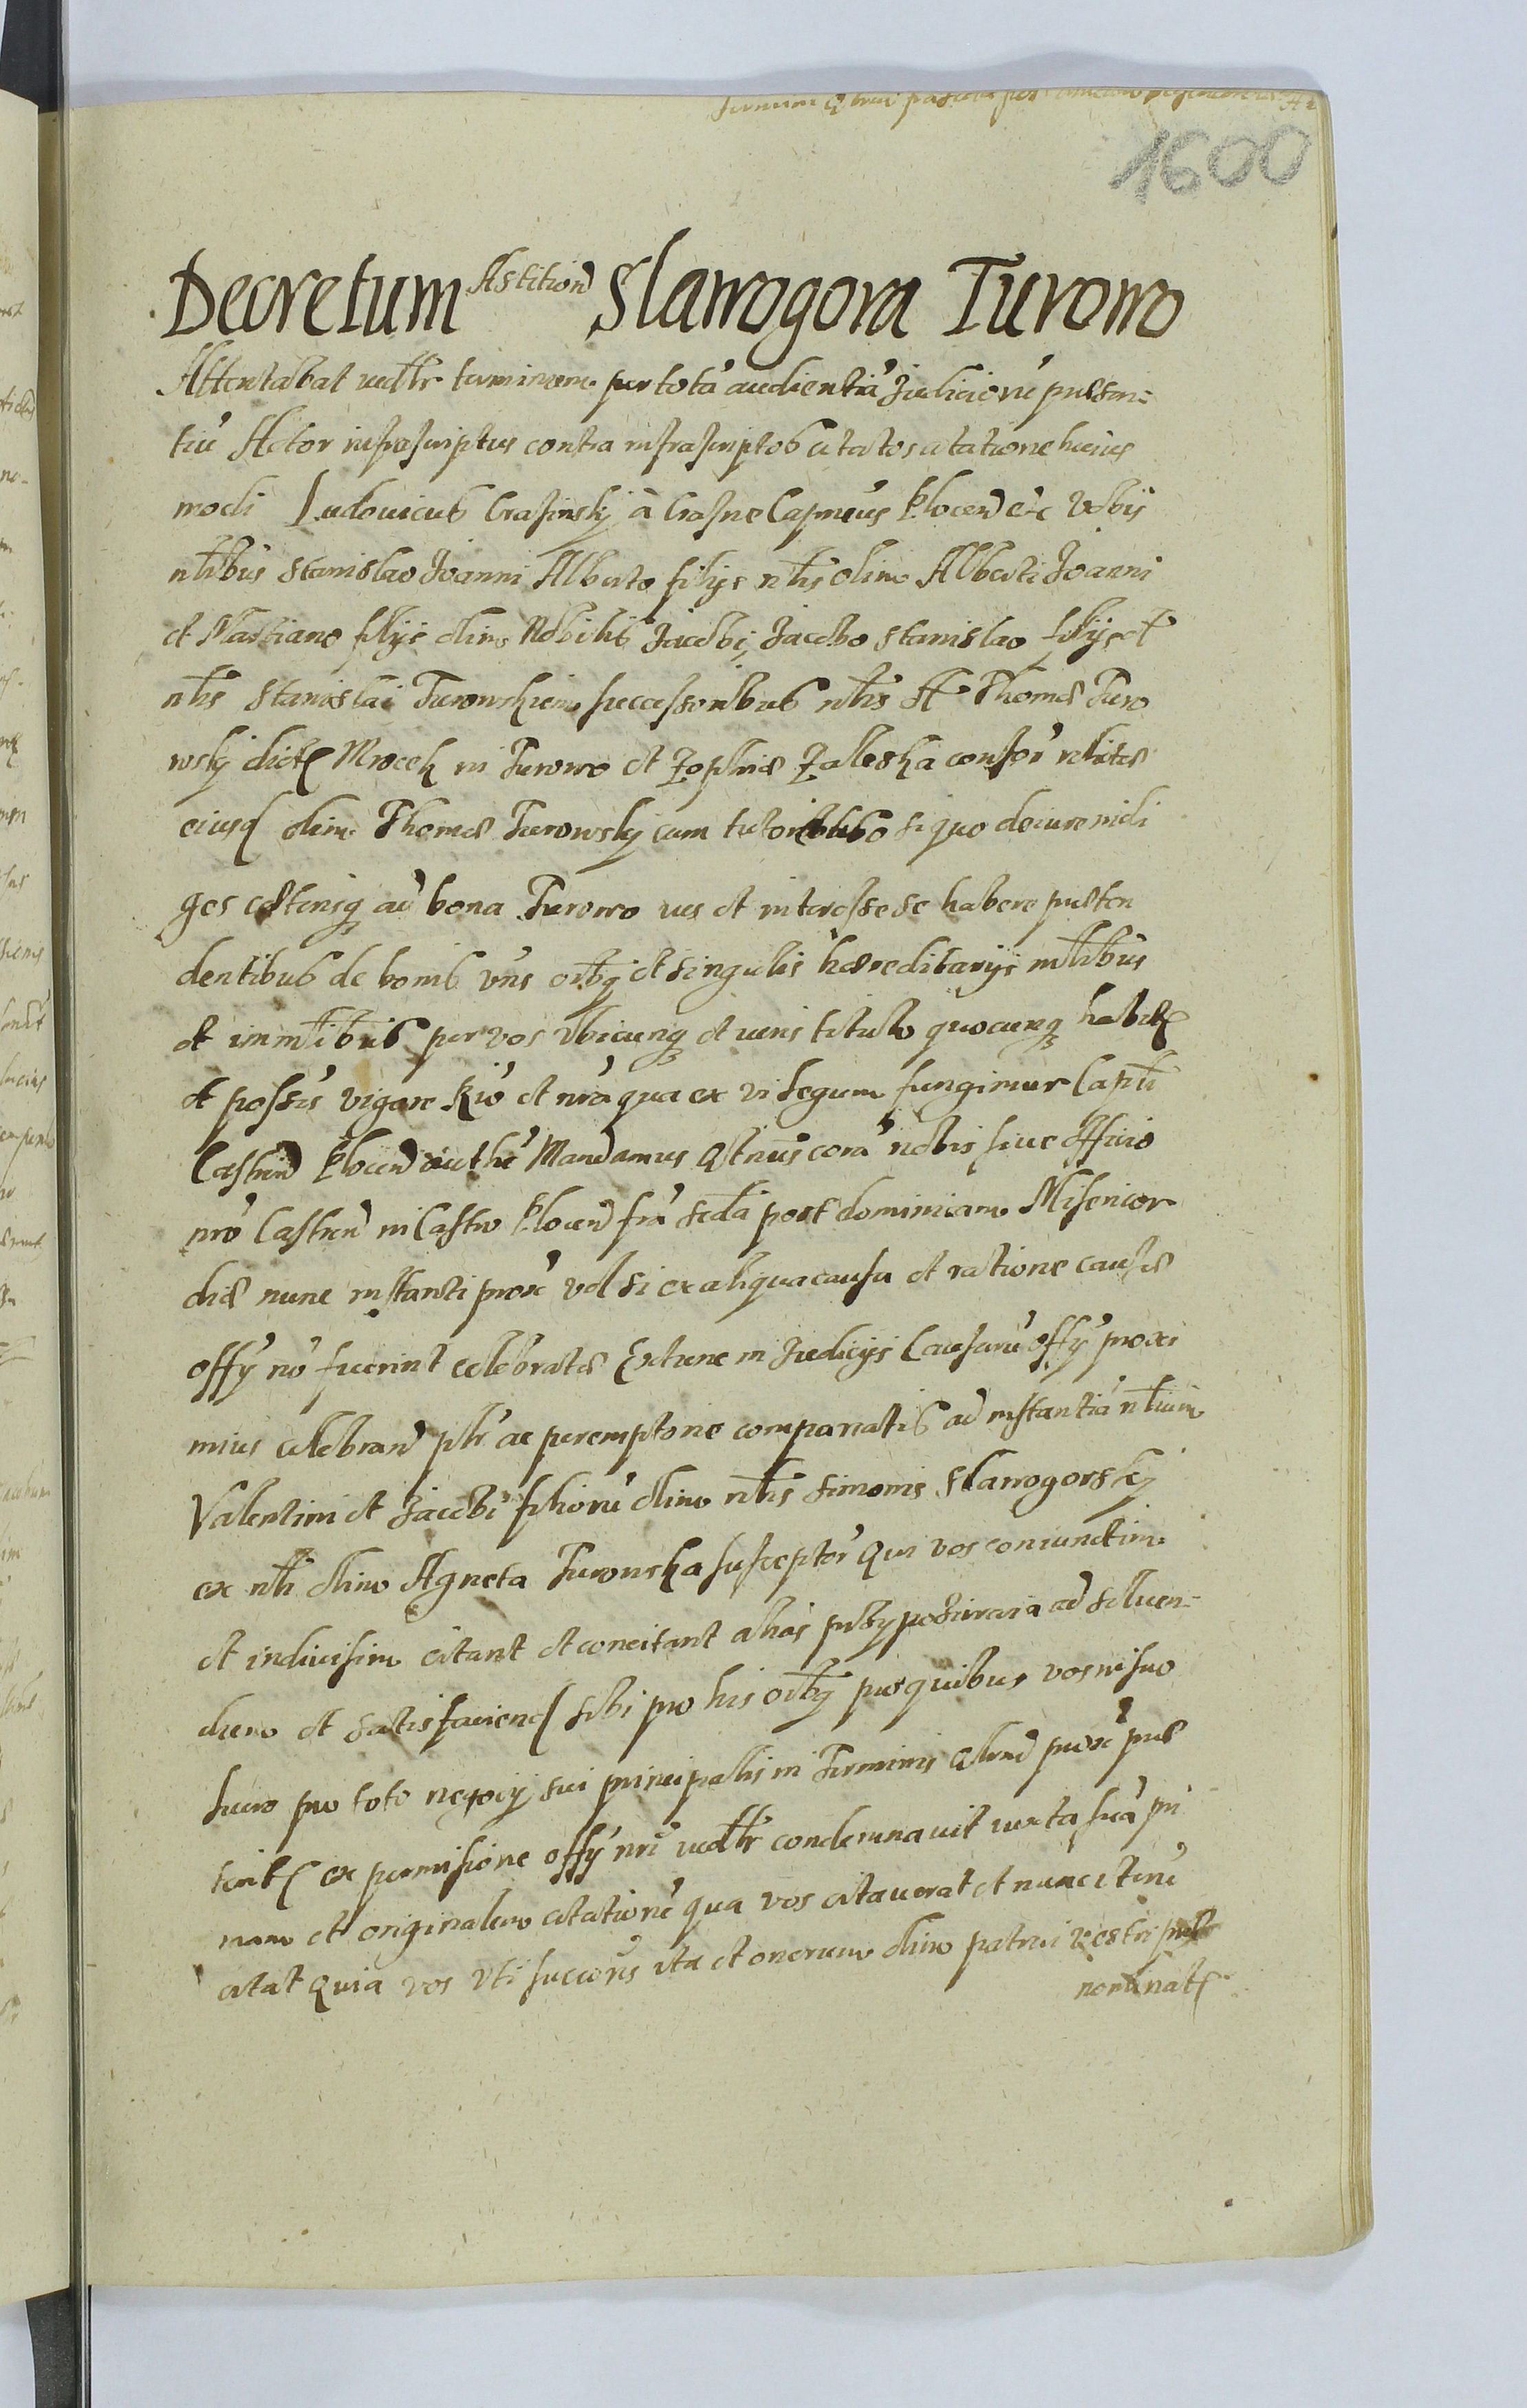 1600
Decretum Astition Slawogora Turowo
Attentabat iudlr terminum per totã audientiã Judiciorũ præsen-
tiũ Actor infrascriptus contra infrascriptos citatos citatione huius
modi Ludouicus Crasinskÿ à Crasne Capneus Plocen etc Vobis
nlibus Stanislao Joanni Alberto filijs nlis olim Alberti Joanni
et Martiano filijs olim Nobilis Jacobi, Jacobo Stanislao filijs ol
nlis Stanislai Turowskiem successoribus nlis ol Thomæ Turo
wskÿ dict Mrocek in Turowo et Zophiæ Zaleska consor relictæ
eiusd olim Thomæ Turowskÿ cum tutoribus si quo de iure indi
ges cæterisq ad bona Turowo ius et interesse se habere præten
dentibus de bonis vris oibq et singulis hæreditarijs mlibus
et immlibus per vos vbicunq et iuris titulo quocunq habit
et possis vigore Rio et nrã qua ex vi legum fungimur Capli
Castren Plocen authe Mandamus Qtnus corã nobis siue Officio
nro Castren in Castro Plocen frã scda post dominicam Misericor
diæ nunc instanti prox vel si ex aliqua causa et ratione causæ
offÿ nõ fuerint celebratæ Extunc in Judicijs Causarũ offÿ proxi
mius celebrand plr ac peremptorie compareatis ad instantiã nlium
Valentini et Jacobi filiorũ olim nlis Simonis Slawogorskÿ
ex nli olim Agneta Turowska susceptor Qui vos coniunctim
et indiuisim citant et concitant alias
dum et satisfaciend sibi pro his oibq pro quibus vos in suo
lucro pro toto negocij sui principalis in Terminis Qlend prox præ
terit ex permissione offÿ nri iudlr condemnauit iuxta suã pri
mam et originalem citationẽ qua vos citauerat et nunc iterũ
citat Quia vos vti succeres ita et onerum olim patrui vestri
nominat